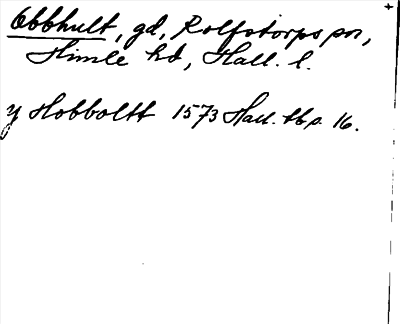 Obbhult, gd, Rolfstorps sn,
Himle hd, Hall. l.
y Hobboltt 1573 Hall. tb s. 16.